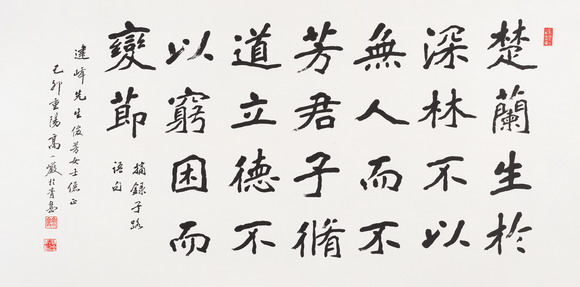 楚蘭生於
深林不以
無人而不
芳君子脩
道立德不
以窮困而
變節
摘錄子路
語句
峰先生俊芳女士正
己卯重陽高一嚴於青島